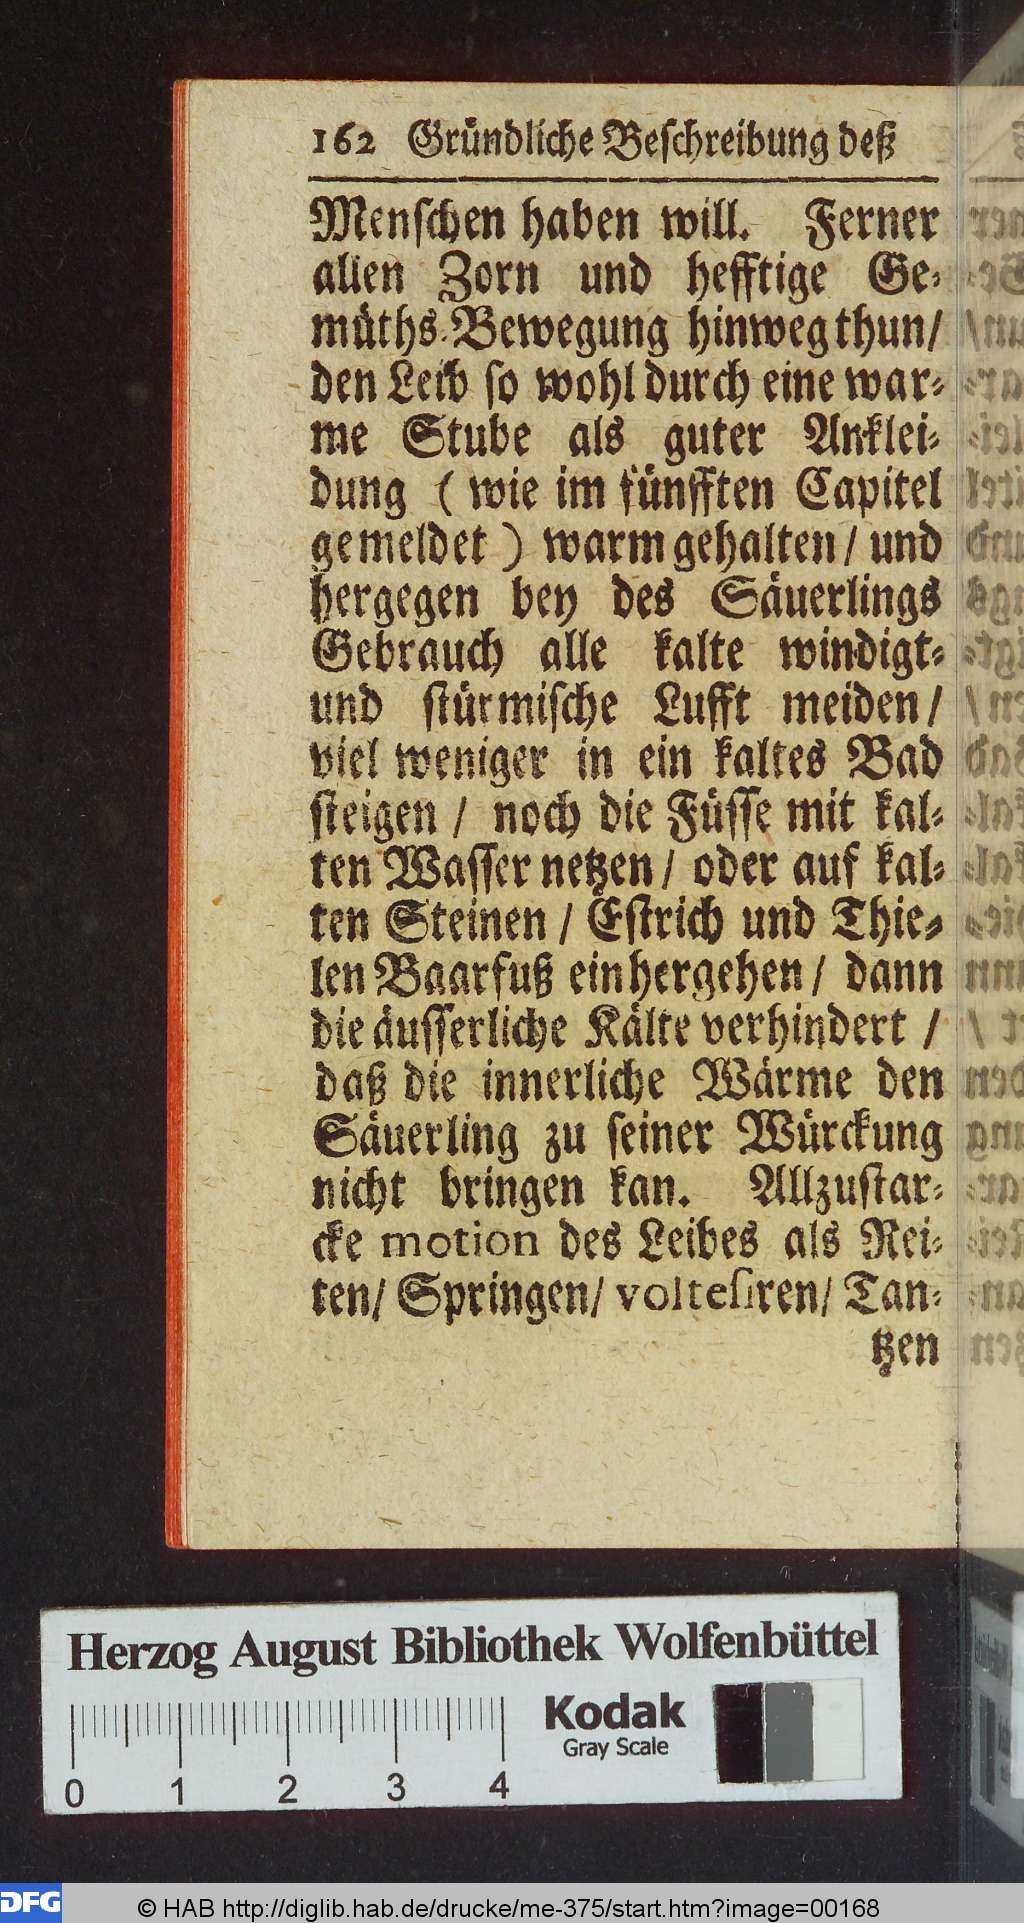 162 Gründliche Beschreibung deß
Menschen haben will. Ferner
allen Zorn und hefftige Ge-
müths-Bewegung hinweg thun/
den Leib so wohl durch eine war-
me Stube als guter Anklei-
dung (wie im fünfften Capitel
gemeldet) warm gehalten/ und
hergegen bey des Säuerlings
Gebrauch alle kalte windigt-
und stürmische Lufft meiden/
viel weniger in ein kaltes Bad
steigen/ noch die Füsse mit kal-
ten Wasser netzen/ oder auf kal-
ten Steinen/ Estrich und Thie-
len Baarfuß einhergehen/ dann
die äusserliche Kälte verhindert/
daß die innerliche Wärme den
Säuerling zu seiner Würckung
nicht bringen kan. Allzustar-
cke motion des Leibes als Rei-
ten/ Springen/ voltesiren/ Tan-
tzen
Herzog August Bibliothek Wolfenbüttel
Kodak
Gray Scale
0 1 2 3 4
DFG
© HAB http://diglib.hab.de/drucke/me-375/start.htm?image=00168